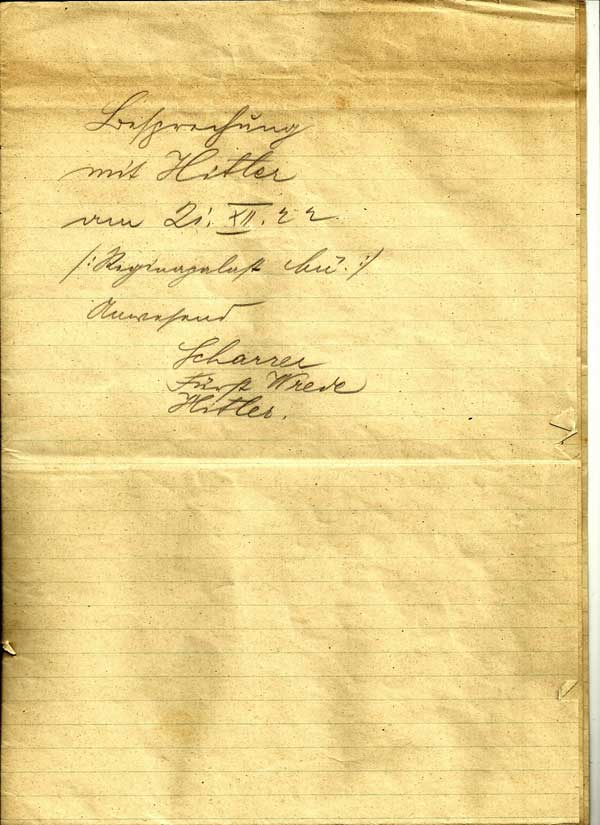 Besprechung
mit Hitler
am 21. XII. 22
/: Reginapalast :/
Anwesend
Scharrer
Fürst Wrede
Hitler.